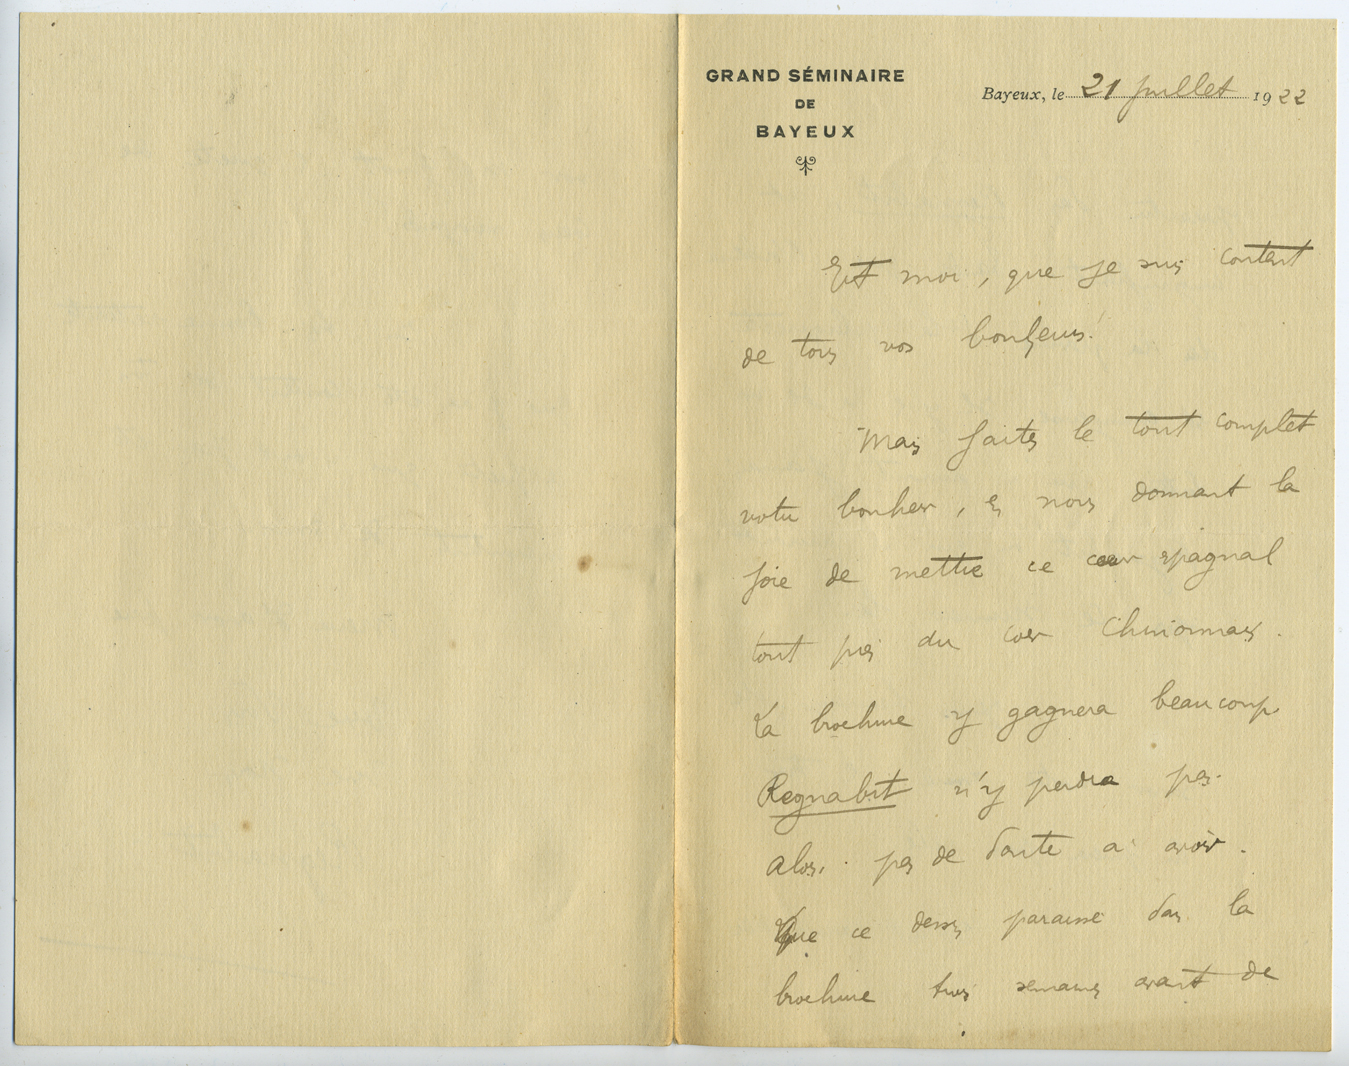 GRAND SÉMINAIRE
DE
BAYEUX
Bayeux, le 21 juillet 1922
Et moi, que je suis content
de tous vos bonheurs!
Mais faites le tout complet
votre bonheur, en nous donnant la
joie de mettre ce cœur espagnol
tout près du cœur
La brochure y gagnera beaucoup.
Regnabit n'y perdra pas.
Alors. pas de doute à avoir.
Que ce dessin paraisse dans la
brochure trois semaines avant de